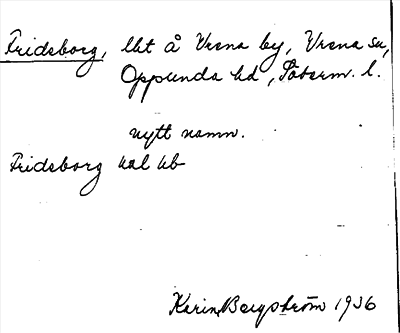 Fridsborg, lht å Vrena by, Vrena sn,
Oppunda hd, Söderm. l.
nytt namn.
Fridsborg ual kb
Karin Bergström 1936